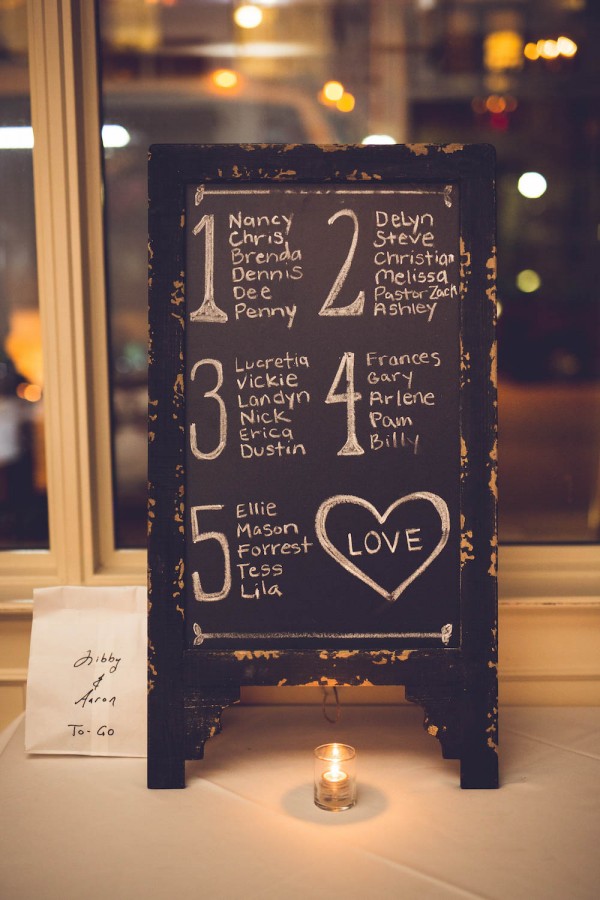 1
Nancy
Chris
Brenda
Dennis
Dee
Penny
2
DeLyn
Steve
Christian
Melissa
Pastor Zach
Ashley
3
Lucretia
Vickie
Landyn
Nick
Erica
Dustin
4
Frances
Gary
Arlene
Pam
Billy
5
Ellie
Mason
Forrest
Tess
Lila
LOVE
Libby
&
Aaron
To-Go